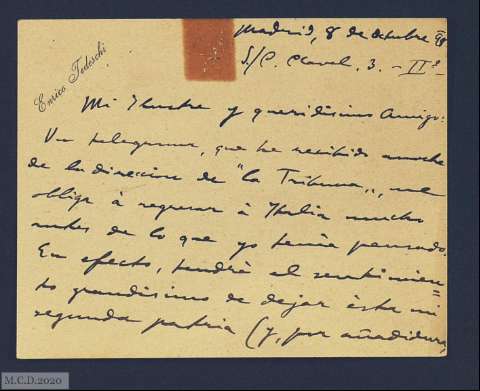 Madrid, 8 de Octubre 98
S/C. Clavel, 3. - IIº
Enrico Tedeschi
Mi Ilustre y queridísimo Amigo:
Un telegrama, que he recibido anoche
de la direccion de "la Tribuna„, me
obliga à regresar à Italia mucho
antes de lo que yo tenía pensado.
En efecto, tendré el sentimien=
to grandísimo de dejar èsta mi
segunda patria (y, por añadidura,
M.C.D.2020